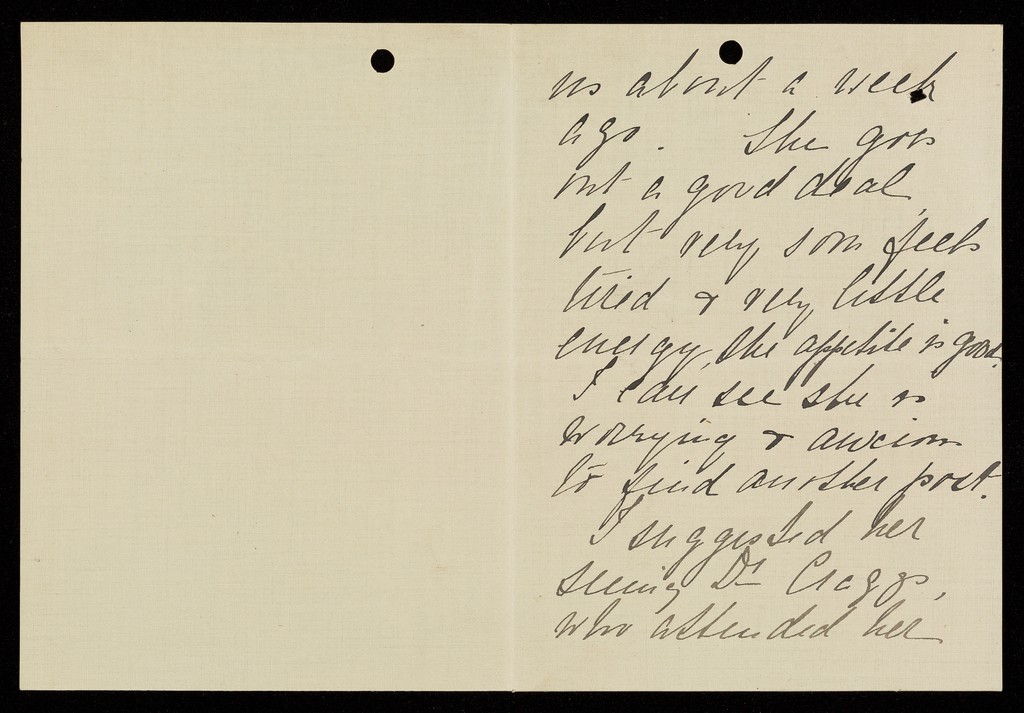 us about a week
ago. She goes
out a good deal,
but very soon feels
tired & very little
energy, the appetite is good.
I can see she is
worrying & anxious
to find another post.
I suggested her
seeing Dr Craggs,
who attended her